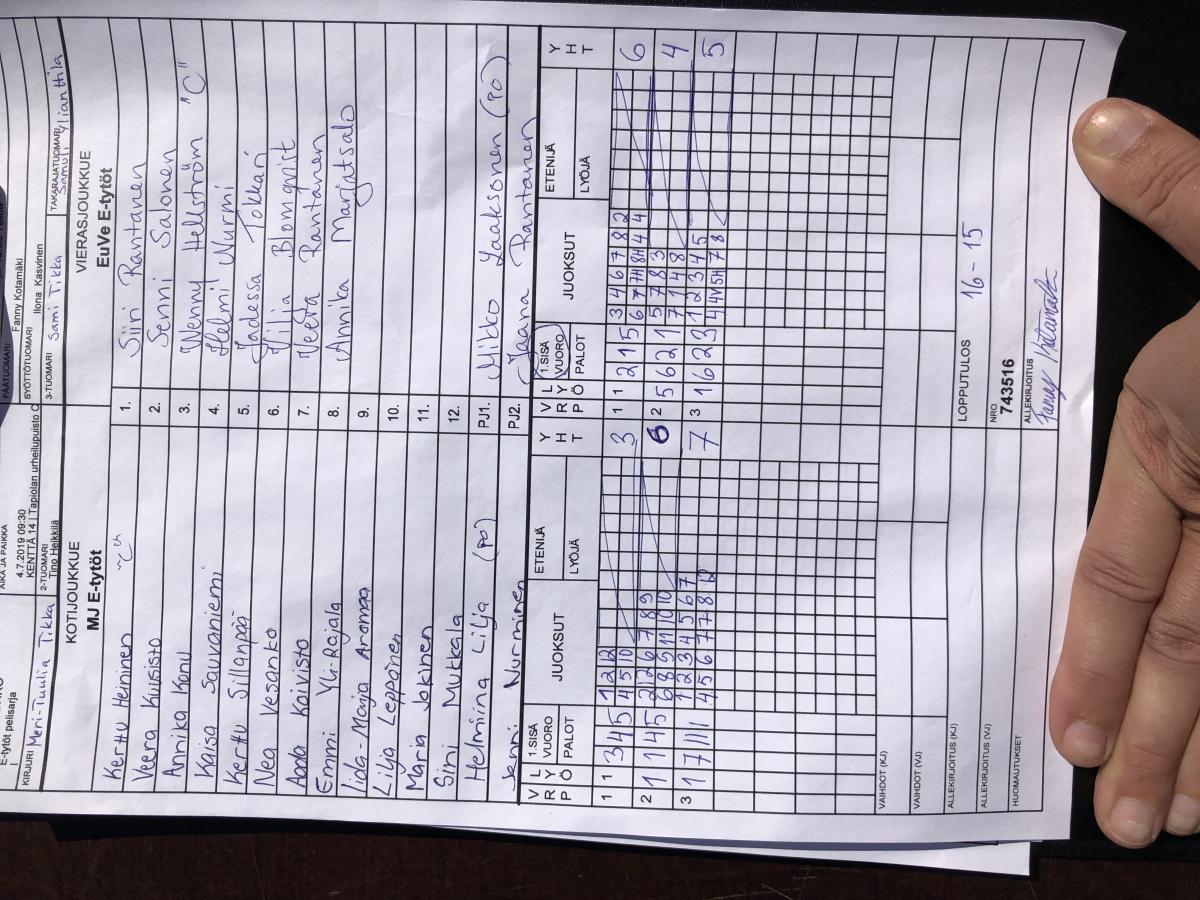 PÄÄTUOMARI Fanny Kotamäki
E-tytöt pelisarja
AIKA JA PAIKKA
4.7.2019 09:30
KENTTÄ 14 | Tapiolan urheilupuisto
SYÖTTÖTUOMARI Ilona Kasvinen
KIRJURI Meri-Tuulia Tikka 2-TUOMARI Tino Heikkilä 3-TUOMARI Sami Tikka TAKARAJATUOMARI Samuli Ylianttila
KOTIJOUKKUE VIERASJOUKKUE
MJ E-tytöt EuVe E-tytöt
Kerttu Heininen "C" 1. Siiri Rantanen
Veera Kuusisto 2. Senni Salonen
Annika Konu 3. Wenny Hellström "C"
Kaisa Sauvaniemi 4. Helmi Nurmi
Kerttu Sillanpää 5. Jodessa Tokkari
Nea Vesanko 6. Vilja Blomqvist
Aada Koivisto 7. Veeta Rantanen
Emmi Yli-Rajala 8. Annika Marjatsalo
Iida-Maija Aromaa 9.
Lilja Leppänen 10.
Maria Jokinen 11.
Sini Mukkala 12.
Helmiina Lilja (PO) PJ1. Mikko Laaksonen (PO)
Jenni Nurminen PJ2. Jaana Rantanen
VRP LYÖ 1.SISÄ VUORO PALOT JUOKSUT ETENIJÄ LYÖJÄ YHT VRP LYÖ 1.SISÄ VUORO PALOT JUOKSUT ETENIJÄ LYÖJÄ YHT
1 1 3 4 5 1 2 12 3 1 1 2 1 5 3 4 6 7 8 2 6
4 5 10 6 7 7H 8H 4 4
2 1 1 4 5 2 12 6 7 8 9 6 2 5 6 2 1 5 7 8 3 4
6 8 9 11 10 10 7 1 4 8
3 1 7 1 1 1 1 2 3 4 5 6 7 7 3 1 6 2 3 1 2 3 4 5 5
4 5 6 7 7 8 12 4 4V 5H 7 8
VAIHDOT (KJ)
VAIHDOT (VJ) LOPPUTULOS 16-15
ALLEKIRJOITUS (KJ)
ALLEKIRJOITUS (VJ) NRO 743516
HUOMAUTUKSET ALLEKIRJOITUS
Fanny Kotamäki